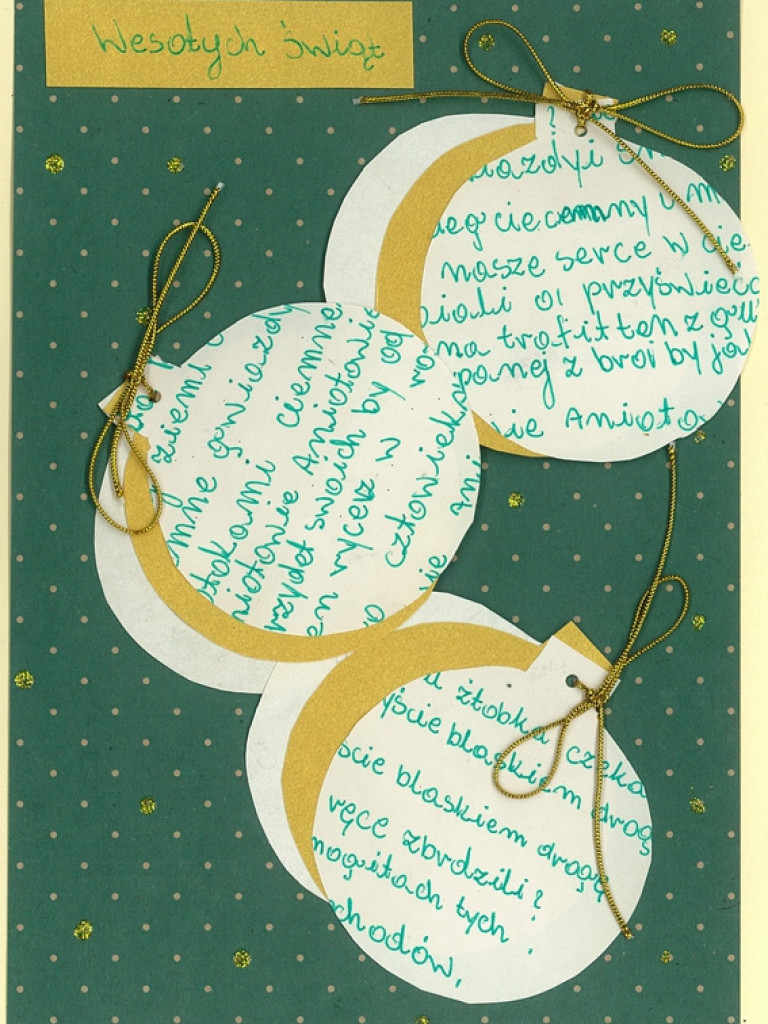 Wesołych świąt
?
iazdyi
ieg ciecemny u m
nasze serce w cie
iali oi przyświeca
na trafił ten z gw
panej z broi by jak
ie Anioło
ziemi
emne gwiazdy
otokami ciemne
niołowie Aniołowie
rzydeł swoich by od
en rycerz w ro
o człowiek
ie zni
u żłobka czeka
yście blaskiem drog
ście blaskiem drogę
ręce zbrdzili?
mogiłach tych
chodów,